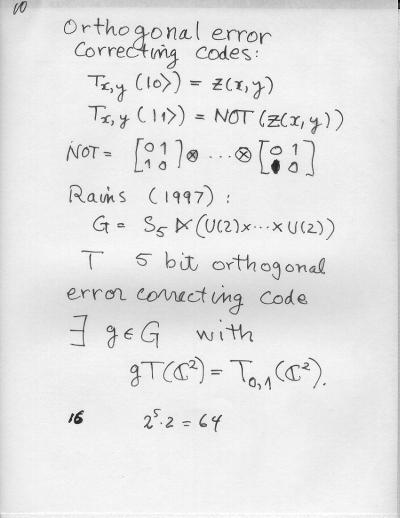 10
Orthogonal error
correcting codes:
T_{x,y} (|0>) = Z(x,y)
T_{x,y} (|1>) = NOT(Z(x,y))
NOT = [0 1 1 0] ⊗ ... ⊗ [0 1 1 0]
Rains (1997):
G = S_5 ⋉ (U(2)×...×U(2))
T 5 bit orthogonal
error correcting code
∃ g∈G with
gT(ℂ²) = T_{0,1}(ℂ²).
16 2⁵·2 = 64